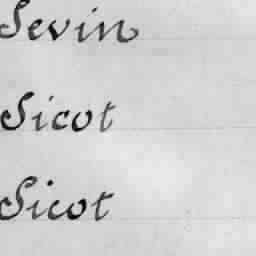 Sevin
Sicot
Sicot